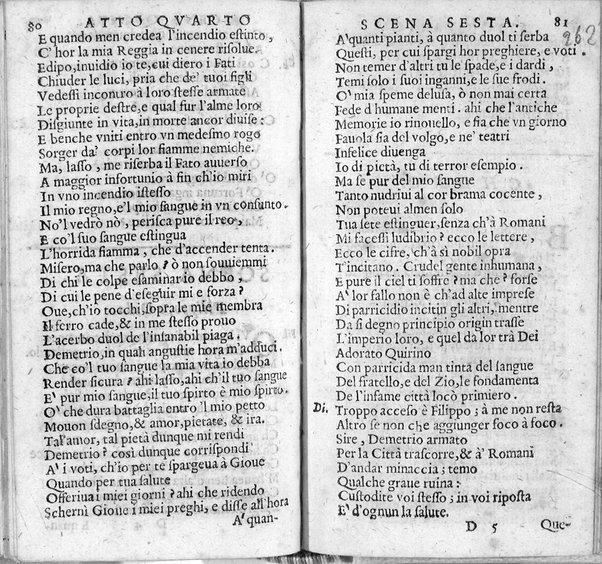 80 ATTO QVARTO
E quando men credea l'incendio estinto,
C'hor la mia Reggia in cenere risolue.
Edipo, inuidio io te, cui diero i Fati
Chiuder le luci, pria che de' tuoi figli
Vedessi incontro à loro stesse armate
Le proprie destre, e qual fur l'alme loro
Disgiunte in vita, in morte ancor diuise:
E benche vniti entro vn medesmo rogo
Sorger da' corpi lor fiamme nemiche.
Ma, lasso, me riserba il Fato auuerso
A maggior infortunio à fin ch'io miri
In vno incendio istesso
Il mio regno, e'l mio sangue in vn consunto.
No'l vedrò nò, perisca pure il reo,
E co'l suo sangue estingua
L'horrida fiamma, che d'accender tenta.
Misero, ma che parlo? ò non souuiemmi
Di chi le colpe esaminar io debbo,
Di cui le pene d'eseguir mi e forza?
Oue, ch'io tocchi, sopra le mie membra
Il ferro cade, & in me stesso prouo
L'acerbo duol de l'insanabil piaga.
Demetrio, in quali angustie hora m'adduci.
Che co'l tuo sangue la mia vita io debba
Render sicura? ahi lasso, ahi ch'il tuo sangue
E' pur mio sangue, il tuo spirto è mio spirto.
O' che dura battaglia entro 'l mio petto
Mouon sdegno, & amor, pietate, & ira.
Tal'amor, tal pietà dunque mi rendi
Demetrio? così dunque corrispondi
A' i voti, ch'io per te spargeua à Gioue
Quando per tua salute
Offeriua i miei giorni? ahi che ridendo
Schernì Gioue i miei preghi, e disse all'hora
A' quan-
SCENA SESTA. 81
262
A' quanti pianti, à quanto duol ti serba
Questi, per cui spargi hor preghiere, e voti.
Non temer d'altri tu le spade, e i dardi,
Temi solo i suoi inganni, e le sue frodi.
O' mia speme delusa, ò non mai certa
Fede d'humane menti. ahi che l'antiche
Memorie io rinouello, e fia che vn giorno
Fauola sia del volgo, e ne' teatri
Infelice diuenga
Io di pietà, tu di terror esempio.
Ma se pur del mio sangue
Tanto nudriui al cor brama cocente,
Non poteui almen solo
Tua sete estinguer, senza ch'à Romani
Mi facessi ludibrio? ecco le lettere,
Ecco le cifre, ch'à sì nobil opra
T'incitano. Crudel gente inhumana,
E pure il ciel ti soffre? ma che? forse
A' lor fallo non è ch'ad alte imprese
Di parricidio incitin gli altri, mentre
Da sì degno principio origin trasse
L'imperio loro, e quel da lor trà Dei
Adorato Quirino
Con parricida man tinta del sangue
Del fratello, e del Zio, le fondamenta
De l'infame città locò primiero.
Di. Troppo acceso è Filippo; à me non resta
Altro se non che aggiunger foco à foco.
Sire, Demetrio armato
Per la Città trascorre, & à' Romani
D'andar minaccia; temo
Qualche graue ruina:
Custodite voi stesso; in voi riposta
E' d'ognun la salute.
D 5 Que-